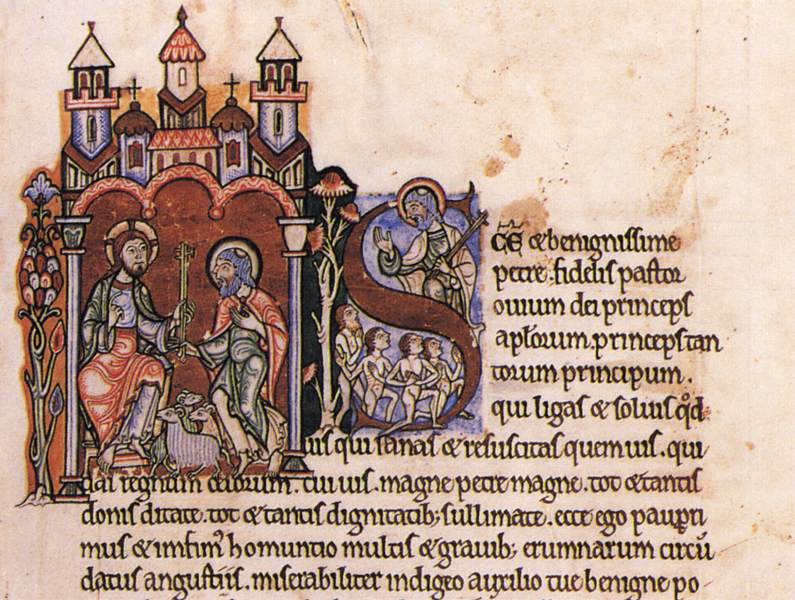 S
c̄e & benignissime
petre. fidelis pastor
ouium dei princeps
apl̄orum. princeps tan
torum principum.
qui ligas & soluis qd̊
uis qui sanas & resuscitas quem uis. qui
das regnum celorum. cui uis. magne petre magne. tot & tantis
donis ditate. tot & tantis dignitatib; sullimate. ecce ego paup̱ri
mus & infim᾽ homuntio multis & grauib; erumnarum circū
datus angustiis. miserabiliter indigeo auxilio tue benigne po